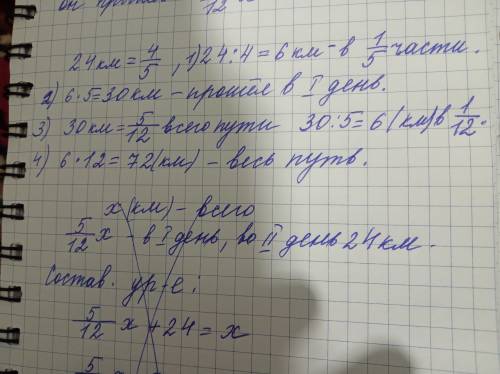 он 12
24 км = 4/5, 1) 24 : 4 = 6 км - в 1/5 части.
2) 6·5 = 30 км - прошёл в I день.
3) 30 км = 5/12 всего пути 30 : 5 = 6 (км) в 1/12.
4) 6·12 = 72 (км) - весь путь.
x (км) - всего
5/12 x - в I день, во II день 24 км.
Состав. ур-е:
5/12 x + 24 = x
5